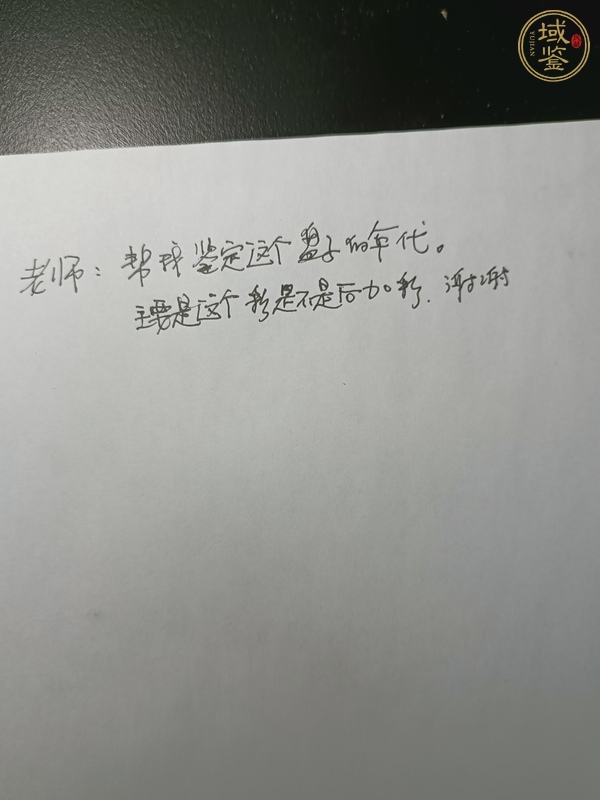 域鉴
YUJIAN
老师：帮我鉴定这个盘子的年代。
主要是这个彩是不是后加彩．谢谢